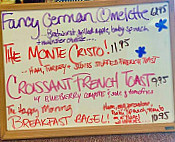 Fancy German Omelette 12.95
Bratwurst, grilled apple, baby spinach
+ muenster cheese
THE MONTE CRISTO! 11.95
Ham, Turkey + Swiss Stuffed French Toast
CROISSANT FRENCH TOAST 9.95
w/ Blueberry Compote
The Happy Morning
BREAKFAST BAGEL! 10.95
Ham, egg,
baby spinach, tomato